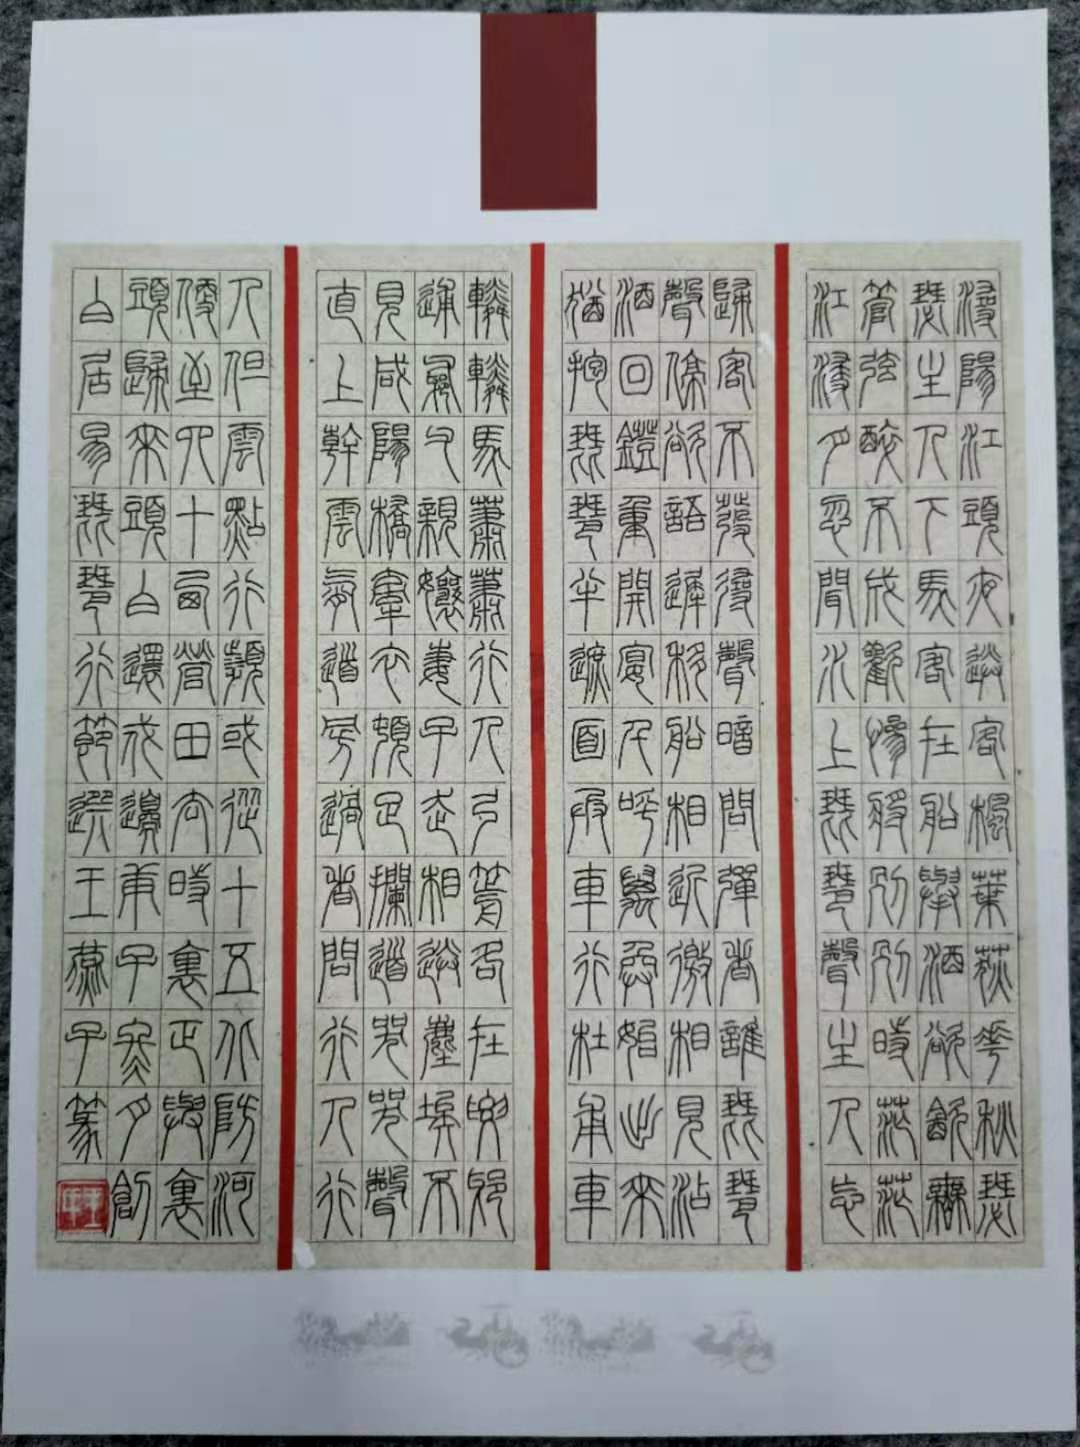 潯陽江頭夜送客楓葉荻花秋瑟
瑟主人下馬客在船舉酒欲飲無
管弦醉不成歡慘將別別時茫茫
江浸月忽聞水上琵琶聲主人忘
歸客不發尋聲暗問彈者誰琵琶
聲停欲語遲移船相近邀相見添
酒回鐙重開宴千呼萬喚始出來
猶抱琵琶半遮面兵車行杜甫車
轔轔馬蕭蕭行人弓箭各在腰耶
親孃妻子走相送塵埃不
見咸陽橋牽衣頓足攔道哭哭聲
直上幹雲霄道旁過者問行人行
人但雲點行頻或從十五北防河
便至四十西營田去時裏正與裏
頭歸來頭白還戍邊庚子冬月創
白居易琵琶行節選王燕子篆